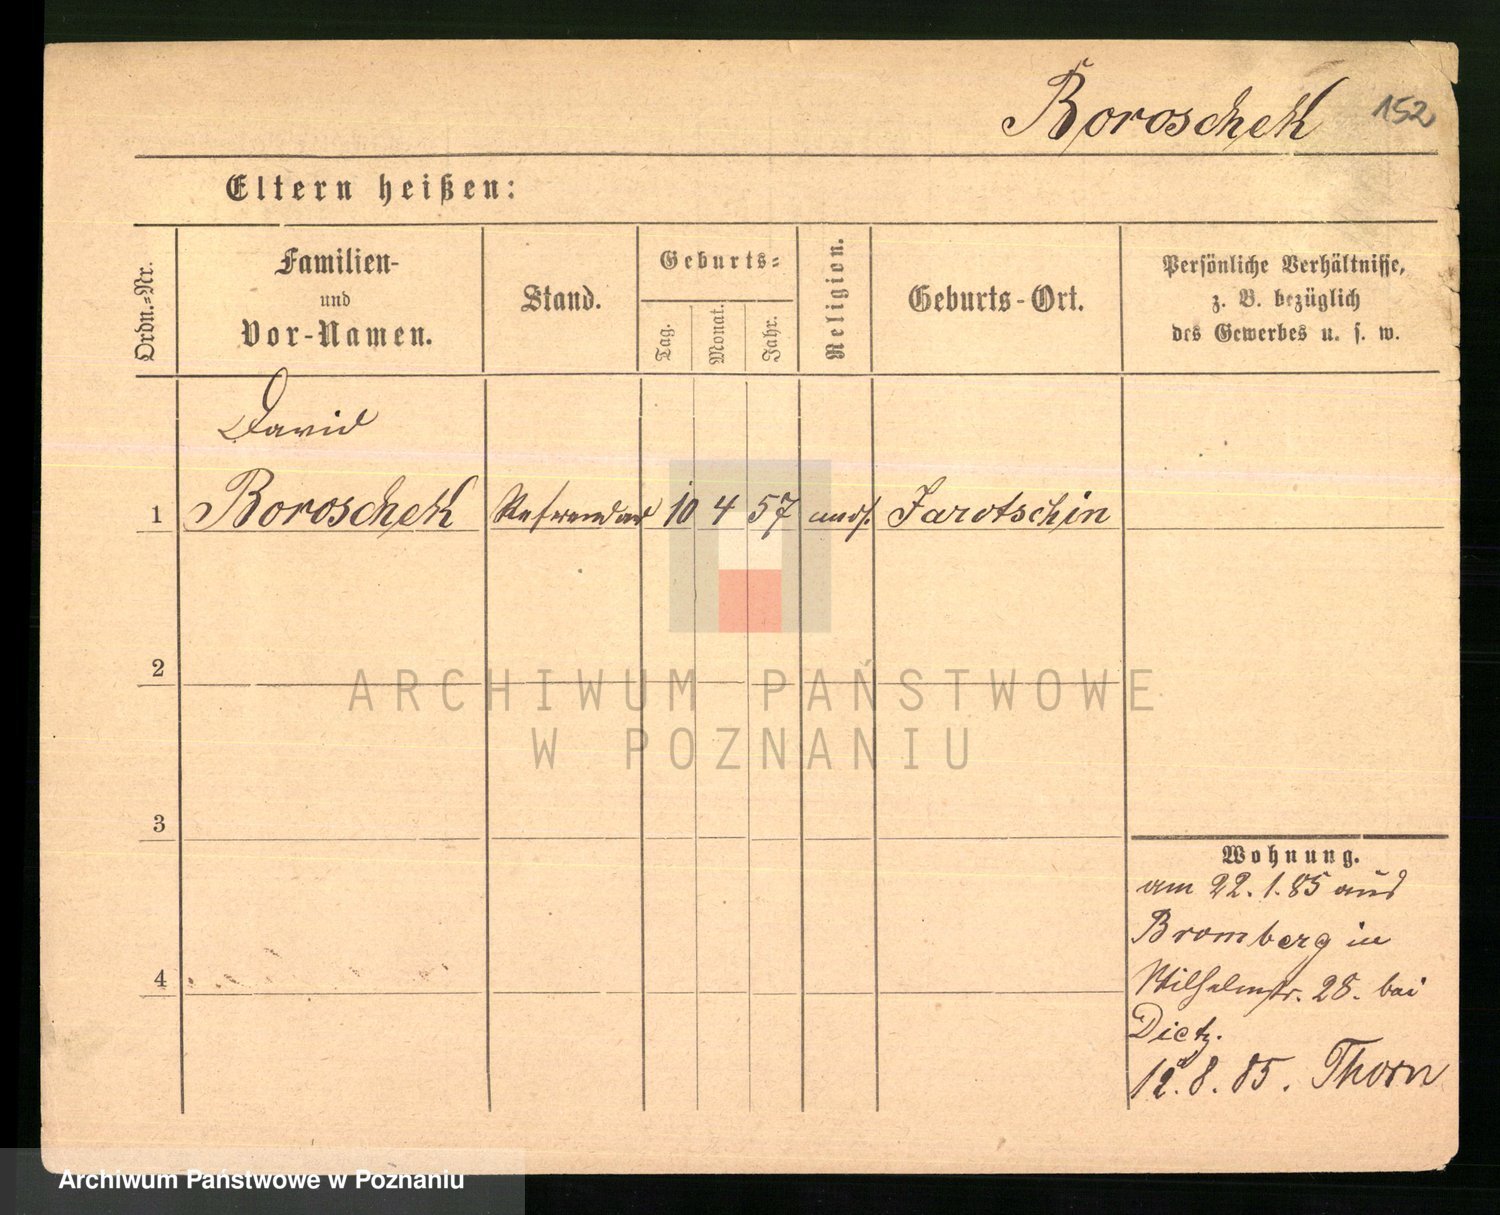 Boroschek 152
Eltern heißen:
Ordn.-Nr.
Familien-
und
Vor-Namen.
Stand.
Geburts-
Tag.
Monat.
Jahr.
Religion.
Geburts-Ort.
Persönliche Verhältnisse,
z. B. bezüglich
des Gewerbes u. s. w.
David
1 Boroschek Referendar 10 4 57 mos. Jarotschin
2
ARCHIWUM PAŃSTWOWE
W POZNANIU
3
Wohnung.
am 22.1.85 aus
Bromberg in
4
Wilhelmstr. 28. bei
Dietz.
12.8.85. Thorn
Archiwum Państwowe w Poznaniu